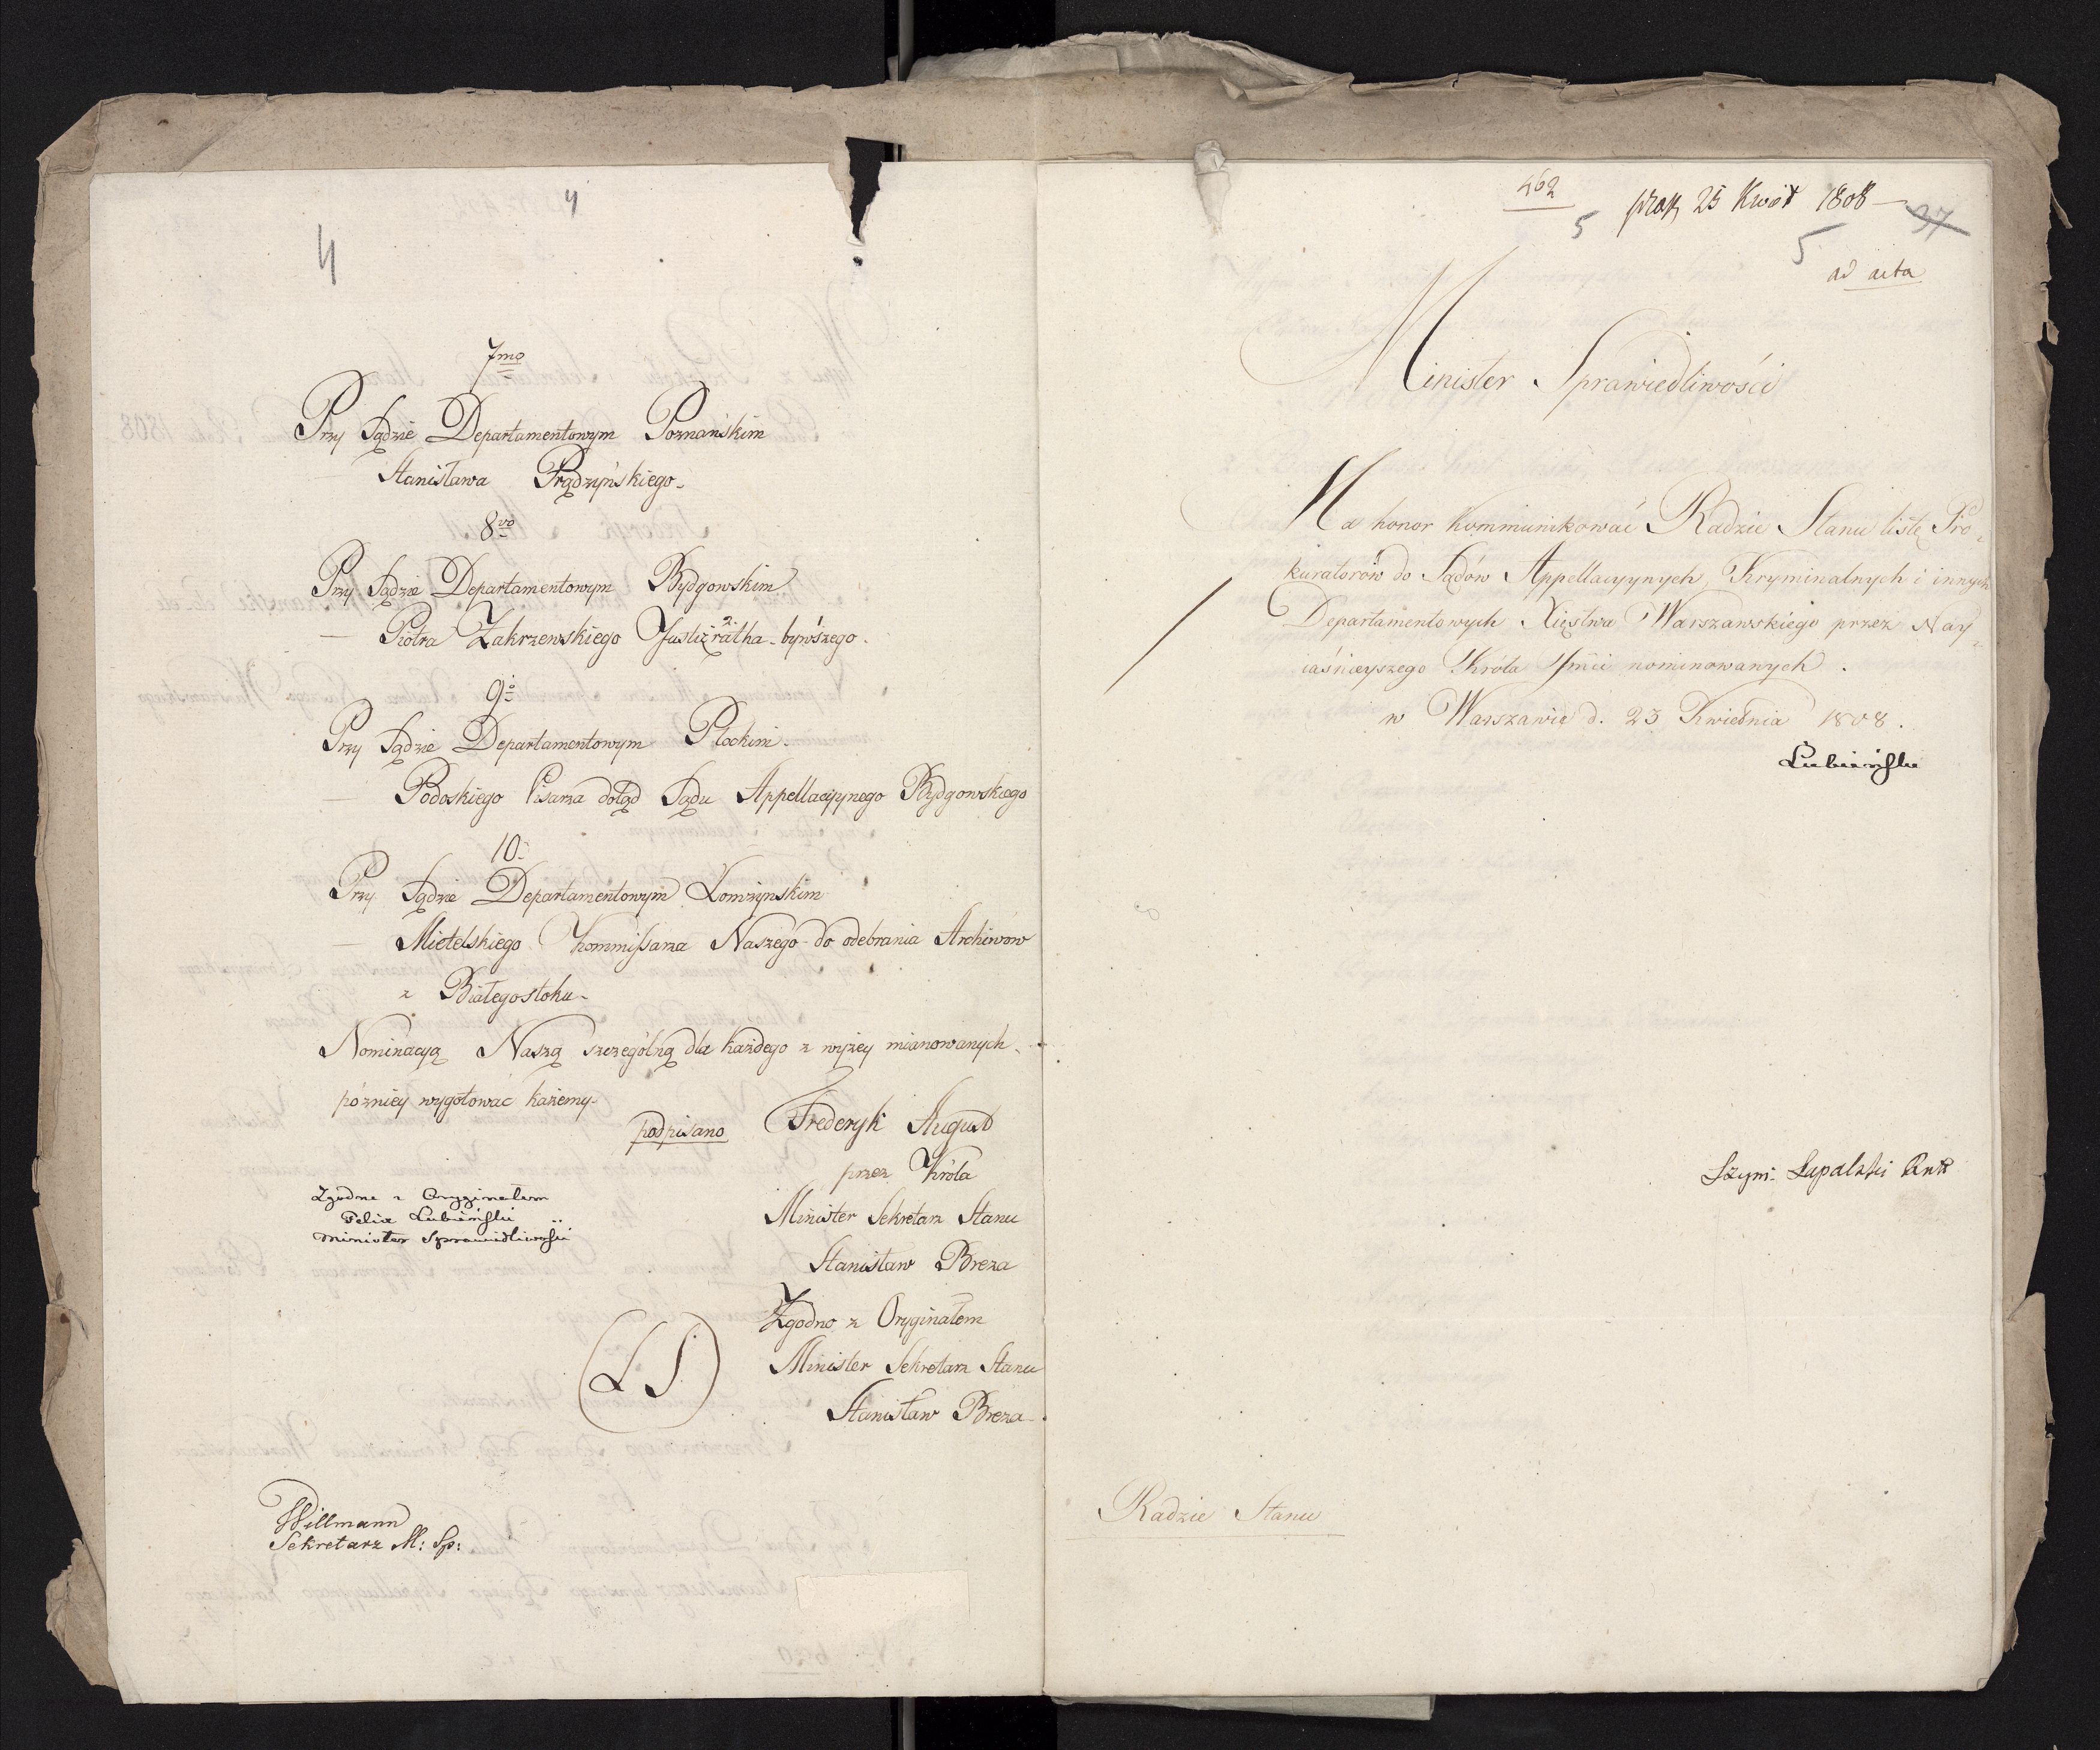 4
4
7mo
Przy Sądzie Departamentowym Poznańskim
Stanisława Prądzyńskiego.
8vo
Przy Sądzie Departamentowym Bydgowskim
— Piotra Zakrzewskiego Justizratha bywszego.
9o
Przy Sądzie Departamentowym Płockim.
— Podoskiego Pisarza dotąd Sądu Appellacyynego Bydgowskiego
10.
Przy Sądzie Departamentowym Łomżynskim
— Mietelskiego Kommissarza Naszego do odebrania Archiwów
z Białegostoku.
Nominacyą Naszą szczególną dla każdego z wyżey mianowanych
pózniey wygotować każemy.
podpisano Frederyk August
przez Króla
Minister Sekretarz Stanu
Stanisław Breza
Zgodno z Oryginałem
Minister Sekretarz Stanu
Stanisław Breza
(L S)
Zgodne z Oryginałem
Felix Lubieński
Minister Sprawiedliwości
Willmann
Sekretarz M: Sp:
462
5 25 Kwiet 1808 — 37
5
ad acta
Minister Sprawiedliwości
Ma honor kommunikować Radzie Stanu listę Pro-
kuratorów do Sądów Appellacyynych, Kryminalnych i innych
Departamentowych Xięstwa Warszawskiego przez Nay-
iaśnieyszego Króla Jmći nominowanych.
w Warszawie d. 23 Kwietnia 1808.
Lubieński
Szym:
Radzie Stanu